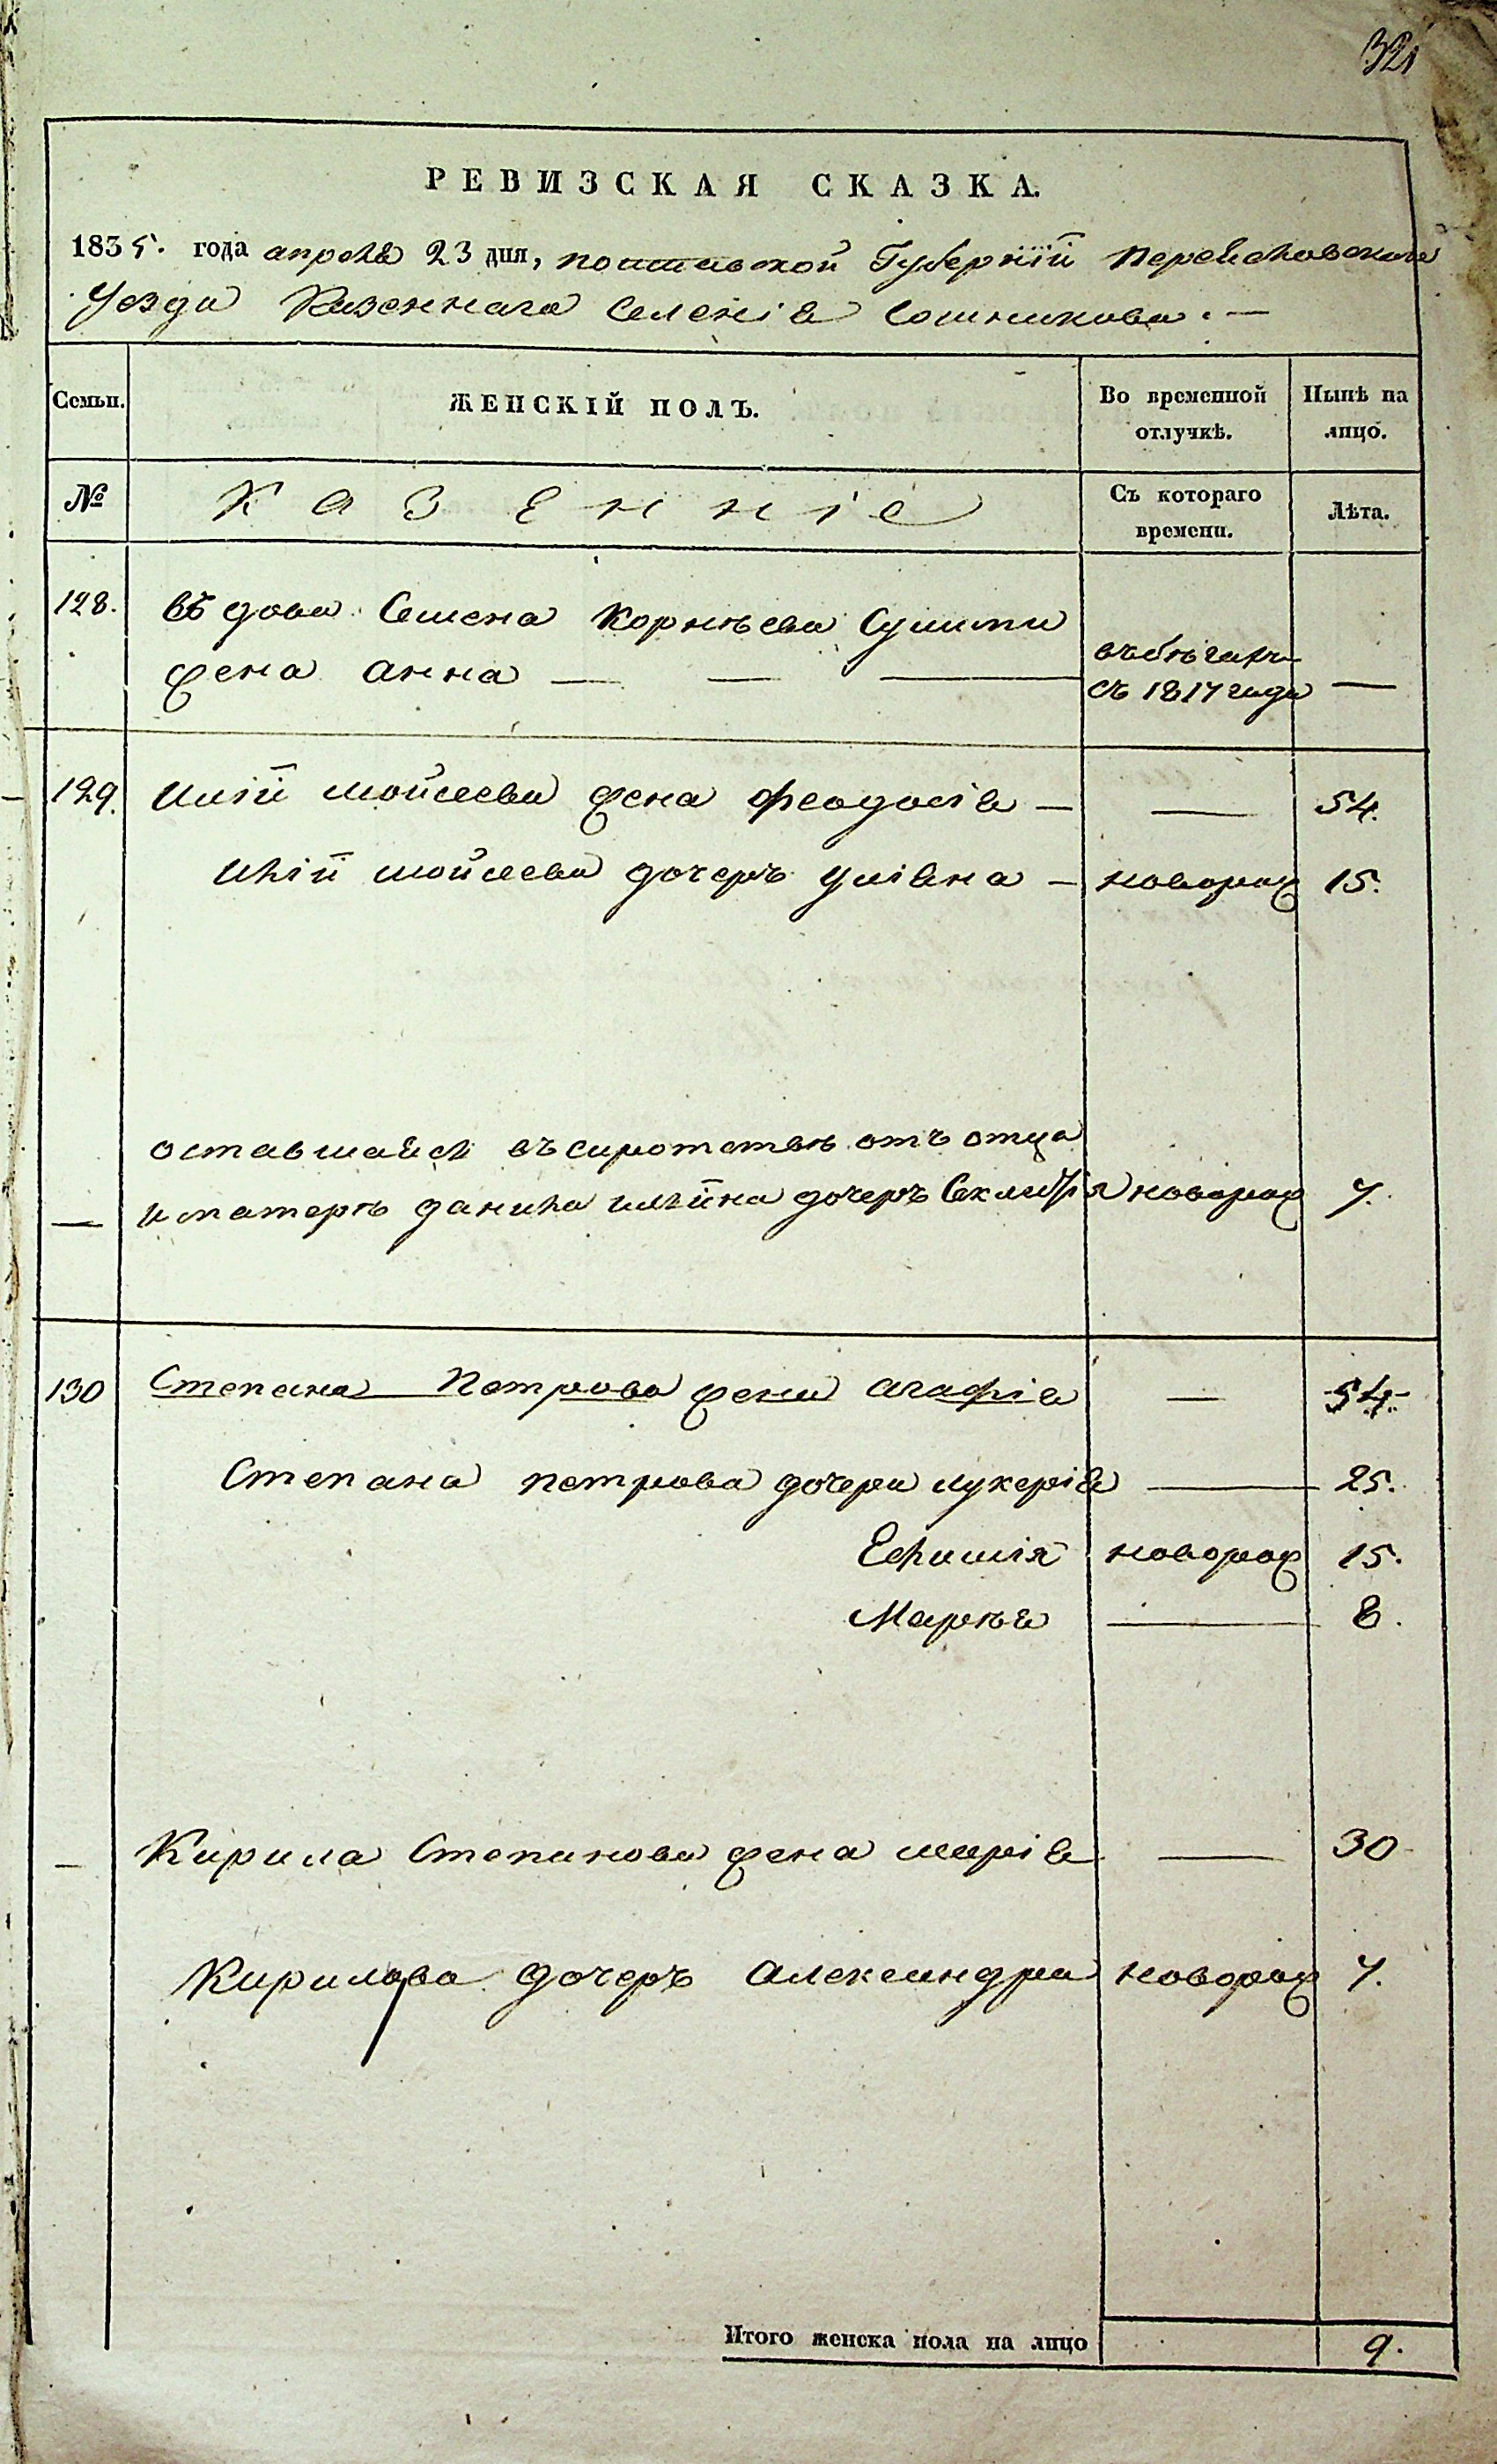 321
РЕВИЗСКАЯ СКАЗКА.
1835. года апреля 23 дня, полтавской Губернїй Переяславскаго
Уезда Казеннаго селенія Сошникова. —
Семьи. ЖЕНСКІЙ ПОЛЪ. Во временной отлучкѣ. Нынѣ на лицо.
№ Казенніе Съ котораго времени. Лѣта.
128. въдова Семена Корнѣева
жена анна — — — въбѣгахъ съ 1817 года —
129. Илїй мойсеева жена феодосія — — 54.
Илїй мойсеева дочеръ уліяна — новорож 15.
оставшаяся въсиротствѣ отъ отца
— и матерѣ данила иліина дочеръ новорож 7.
130 Степана Петрова жена агафія — 54.
Степана петрова дочери лукерія — 25.
Ефимія новорож 15.
Марѣя — 8.
— Кирила Степанова жена марія — 30
Кирилова дочеръ александра новорож 7.
Итого женска пола на лицо 9.